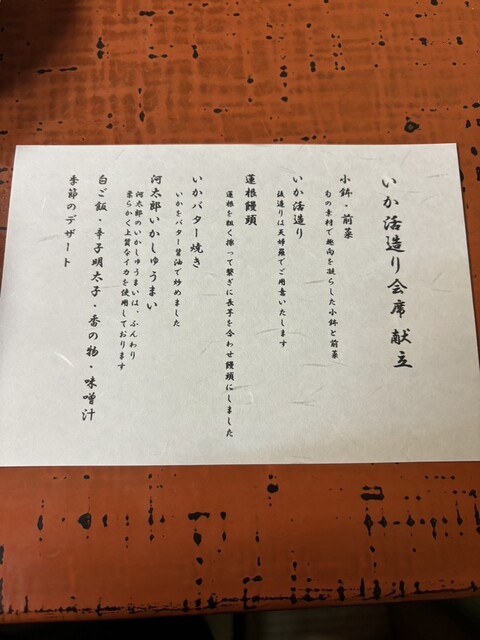 いか活造り会席 献立
小鉢・前菜
旬の素材で趣向を凝らした小鉢と前菜
いか活造り
後造りは天婦羅でご用意いたします
蓮根饅頭
蓮根を粗く擦って繋ぎに長芋を合わせ饅頭にしました
いかバター焼き
いかをバター醤油で炒めました
河太郎いかしゅうまい
河太郎のいかしゅうまいは、ふんわり
柔らかく上質なイカを使用しております
白ご飯・辛子明太子・香の物・味噌汁
季節のデザート